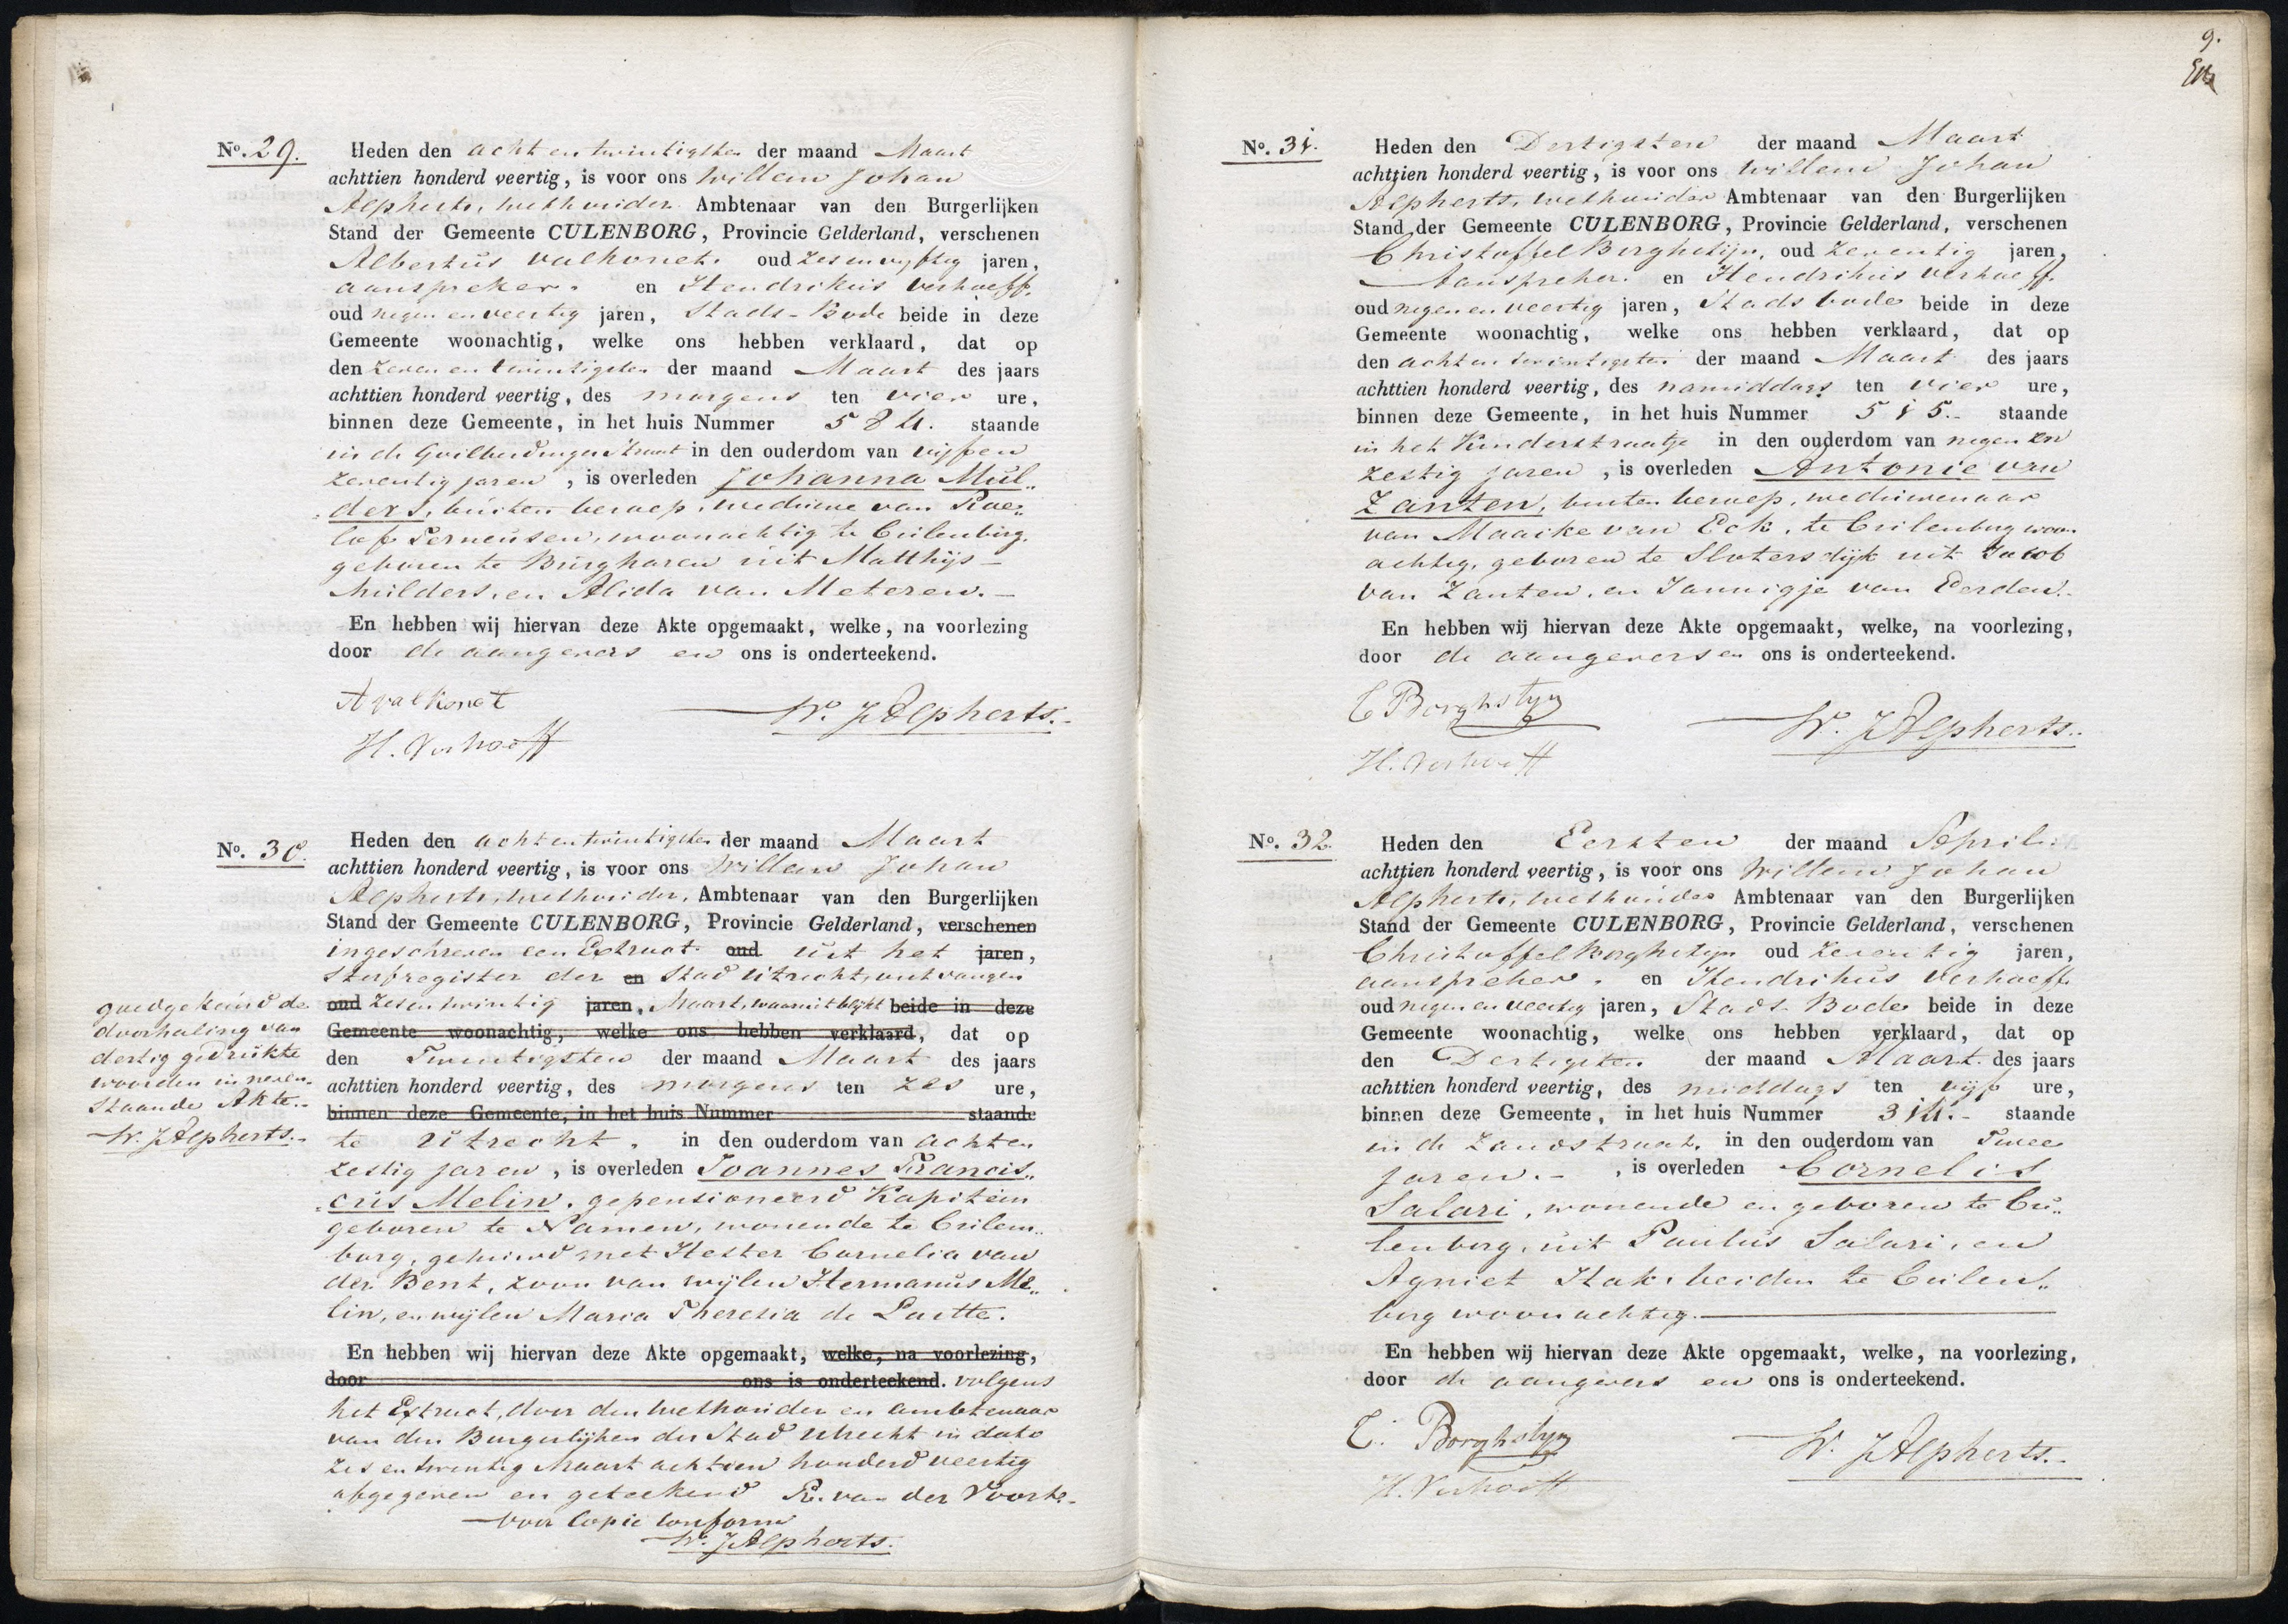 No. 29. Heden den acht en twintigsten der maand Maart
achttien honderd veertig, is voor ons Willem Johan
Alpherts, wethouder Ambtenaar van den Burgerlijken
Stand der Gemeente CULENBORG, Provincie Gelderland, verschenen
Albertus Valkonet. oud zes en vyftig jaren,
aanspreker. en Hendrikus Verhoeff.
oud negen en veertig jaren, Stads-Bode beide in deze
Gemeente woonachtig, welke ons hebben verklaard, dat op
den zeven en twintigsten der maand Maart des jaars
achttien honderd veertig, des morgens ten vier ure,
binnen deze Gemeente, in het huis Nummer 584. staande
in de straat in den ouderdom van vijf en
zeventig jaren, is overleden Johanna Mul„
„ders, buiten beroep, weduwe van Roe„
lof Terneusen, woonachtig te Cuilenburg,
geboren te Burgharen uit Matthijs
Mulders, en Alida van Meteren.
En hebben wij hiervan deze Akte opgemaakt, welke, na voorlezing
door de aangevers en ons is onderteekend.
A Valkonet
W. J Alpherts.
H. Verhoeff
No. 30. Heden den acht en twintigsten der maand Maart
achttien honderd veertig, is voor ons Willem Johan
Alpherts, wethouder, Ambtenaar van den Burgerlijken
Stand der Gemeente CULENBORG, Provincie Gelderland, verschenen
ingeschreven een Extract oud uit het jaren,
sterfregister der en Stad Utrecht, ontvangen
oud zes en twintig jaren, Maart, waaruit blijkt beide in deze
Gemeente woonachtig, welke ons hebben verklaard, dat op
den Twintigsten der maand Maart des jaars
achttien honderd veertig, des morgens ten zes ure,
binnen deze Gemeente, in het huis Nummer staande
te Utrecht, in den ouderdom van acht en
zestig jaren, is overleden Joannes Francis„
„cus Melin, gepensioneerd Kapitein
geboren te Namen, wonende te Cuilem„
borg, gehuwd met Hester Cornelia van
der Bent, zoon van wijlen Hermanus Me„
lin, en wijlen Maria Theresia de Laitte.
En hebben wij hiervan deze Akte opgemaakt, welke, na voorlezing,
door ons is onderteekend. volgens
het Extract, door den wethouder en ambtenaar
van den Burgerlijken der Stad Utrecht in dato
zes en twintig Maart achttien honderd veertig
afgegeven en geteekend R. van der Voort.
voor Copie conform
W. J Alpherts.
goedgekeurd de
doorhaling van
dertig gedrukte
woorden in neven„
staande Akte.
W. J Alpherts.
9.
No. 31. Heden den Dertigsten der maand Maart
achttien honderd veertig, is voor ons Willem Johan
Alpherts, wethouder Ambtenaar van den Burgerlijken
Stand der Gemeente CULENBORG, Provincie Gelderland, verschenen
Christoffel Borghstijn, oud zeventig jaren,
Aanspreker. en Hendrikus Verhoeff.
oud negen en veertig jaren, Stads bode beide in deze
Gemeente woonachtig, welke ons hebben verklaard, dat op
den acht en twintigsten der maand Maart des jaars
achttien honderd veertig, des namiddags ten vier ure,
binnen deze Gemeente, in het huis Nummer 515. staande
in het Kinderstraatje in den ouderdom van negen en
zestig jaren, is overleden Antonie van
Zanten, buiten beroep, weduwenaar
van Maaike van Eck, te Cuilenburg woon
achtig, geboren te Slotersdijk uit Jacob
van Zanten, en Jannigje van Eerden.
En hebben wij hiervan deze Akte opgemaakt, welke, na voorlezing,
door de aangevers en ons is onderteekend.
C Borghstyn
W. J Alpherts.
H. Verhoeff
No. 32. Heden den Eersten der maand April
achttien honderd veertig, is voor ons Willem Johan
Alpherts, wethouder Ambtenaar van den Burgerlijken
Stand der Gemeente CULENBORG, Provincie Gelderland, verschenen
Christoffel Borghstijn oud zeventig jaren,
aanspreker. en Hendrikus Verhoeff.
oud negen en veertig jaren, Stads-Bode beide in deze
Gemeente woonachtig, welke ons hebben verklaard, dat op
den Dertigsten der maand Maart des jaars
achttien honderd veertig, des middags ten vijf ure,
binnen deze Gemeente, in het huis Nummer 314. staande
in de Zandstraat, in den ouderdom van Twee
jaren., is overleden Cornelis
Salari, wonende en geboren te Cu„
lenborg, uit Paulus Salari, en
Agniet Hak, beiden te Cuilen„
borg woonachtig.
En hebben wij hiervan deze Akte opgemaakt, welke, na voorlezing,
door de aangevers en ons is onderteekend.
C. Borghstyn
W. J Alpherts.
H. Verhoeff